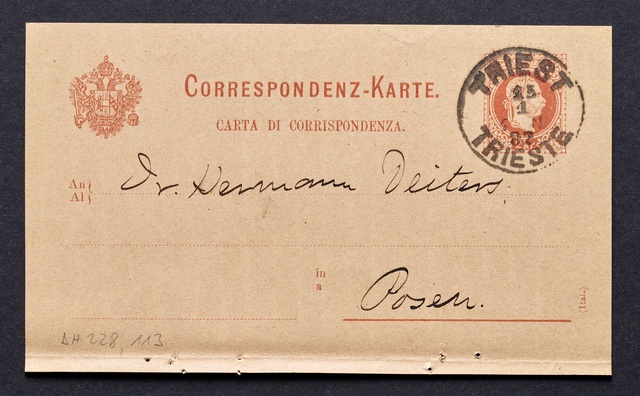 CORRESPONDENZ-KARTE.
CARTA DI CORRISPONDENZA.
TRIEST
25
1
82
TRIESTE
An
Al
Dr. Hermann Deiters
in
a
Posen.
(Ital.)
DH 228, 113